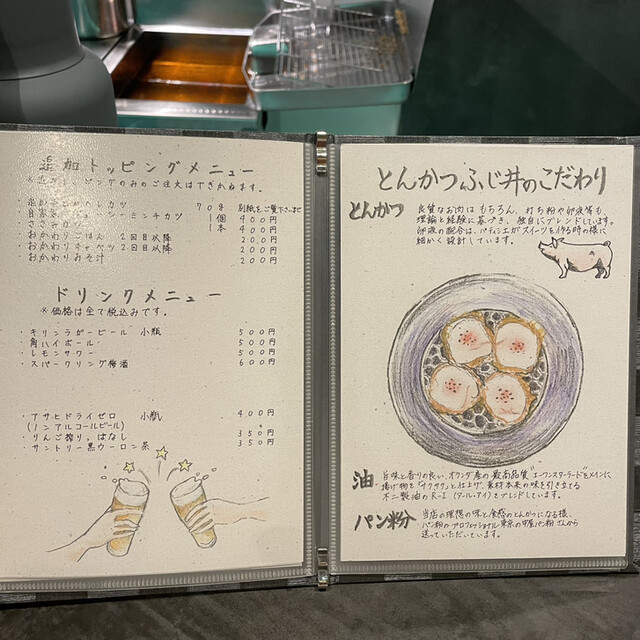 追加トッピングメニュー
のみのご注文はできかねます。
カツ 70g 別紙をご覧下さいませ
ミンチカツ 1個 400円
ささみカツ 1本 400円
おかわりごはん 2回目以降 200円
おかわりキャベツ 2回目以降 200円
おかわりみそ汁 200円
ドリンクメニュー
※価格は全て税込みです。
・キリンラガービール 小瓶 500円
角ハイボール 500円
・レモンサワー 500円
・スパークリング梅酒 600円
・アサヒドライゼロ 小瓶 400円
(ノンアルコールビール)
・りんご搾り、はなし 350円
・サントリー黒ウーロン茶 350円
とんかつふじ井のこだわり
とんかつ
良質なお肉はもちろん、打ち粉や卵液等も、
理論と経験に基づき、独自にブレンドしています。
卵液の配合は、パティシエがスイーツを作る時の様に
細かく設計しています。
油
旨味と香りの良い、オランダ産の最高品質"エーワンスターラード"をメインに
揚げ物を"サクサク"と仕上げ、素材本来の味を引き立てる
不二製油のR-I (アール・アイ)をブレンドしています。
パン粉
当店の理想の味と食感のとんかつになる様、
パン粉のプロフェッショナル東京の中屋パン粉さんから
送っていただいています。